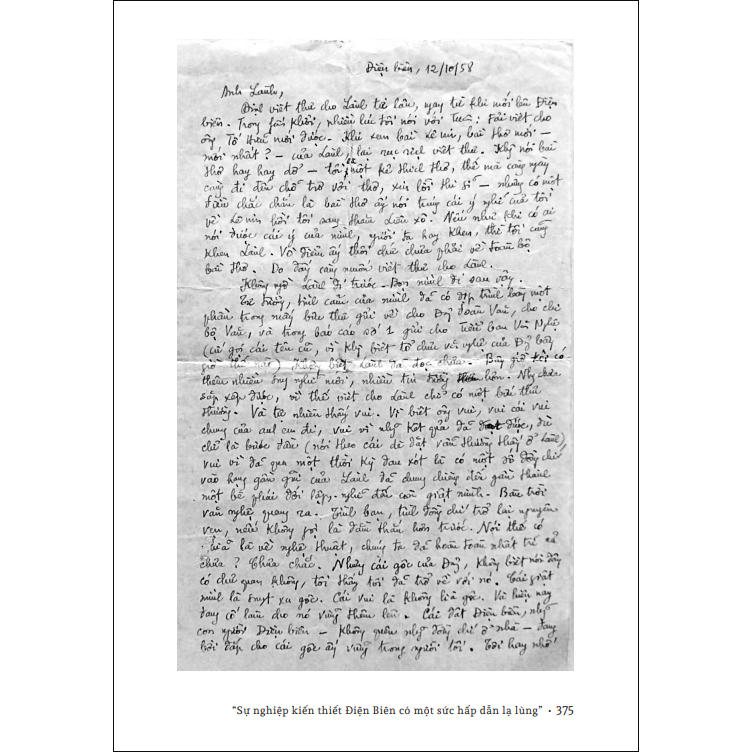 Điện biên, 12/10/58
Anh Lành,
Định viết thư cho Lành từ lâu, ngay từ khi mới lên Điện
biên. Trong fấn khởi, nhiều lúc tôi nói với Tuân: Fải viết cho
ông Tố Hữu mới được. Khi xem bài về nin, bài thơ mới —
mới nhất? — của Lành, lại rục rịch viết thư. Khg nói bài
thơ hay hay dở — tôi một kẻ thích thơ, thế mà càng ngày
càng đi đến chỗ trơ với thơ, xin lỗi thi sĩ — nhưng có một
điều chắc chắn là bài thơ ấy nói trúng cái ý nghĩ của tôi
về Lê nin hồi tôi sang thăm Liên xô. Nếu như khi có ai
nói được cái ý của mình, người ta hay khen, thì tôi cũng
khen Lành. Về điều ấy thôi chứ chưa phải về toàn bộ
bài thơ. Do đấy càng muốn viết thư cho Lành.
Không ngờ Lành đi trước. Bọn mình đi sau vậy.
Tư tưởng, tình cảm của mình đã có dịp trình bày một
phần trong mấy bức thư gửi về cho Đg đoàn Văn, cho chi
bộ Văn, và trong báo cáo số 1 gửi cho Tiểu ban Văn Nghệ
(cứ gọi cái tên cũ, vì khg biết tổ chức văn nghệ của Đg bây
giờ thế nào) Khg biết Lành đã đọc chưa. Bây giờ có
thêm nhiều suy nghĩ mới, nhiều tin tưởng hơn. Nhg chưa
sắp xếp được, vì thế viết cho Lành chỉ có một bức thư
thường. Và tự nhiên thấy vui. Vì biết ông vui, vui cái vui
chung của anh em đi, vui vì nhg kết quả đã đạt được, dù
chỉ là bước đầu (nói theo cái dè dặt vẫn thường thấy ở Lành),
vui vì đã qua một thời kỳ đau xót là có một số đồng chí
vào hạng gần gũi của Lành đã chung chiêng đến gần thành
một bè phái đối lập, nghĩ đến còn giật mình. Bầu trời
văn nghệ quang ra. Tình bạn, tình đồng chí trở lại nguyên
vẹn, nếu không gọi là đằm thắm hơn trước. Nói thế có
là về nghệ thuật, chúng ta đã hoàn toàn nhất trí cả
chưa? Chưa chắc. Nhưng cái gốc của Đg, không biết nói đây
có chủ quan không, tôi thấy tôi đã trở về với nó. Cái giật
mình là suýt xa gốc. Cái vui là không lìa gốc. Và hiện nay
đang cố làm cho nó vững thêm lên. Cái đất Điện biên, nhg
con người Điện biên — không quên nhg đồng chí ở nhà — đang
bồi đắp cho cái gốc ấy vững trong người tôi. Tôi hay nhớ
“Sự nghiệp kiến thiết Điện Biên có một sức hấp dẫn lạ lùng” • 375